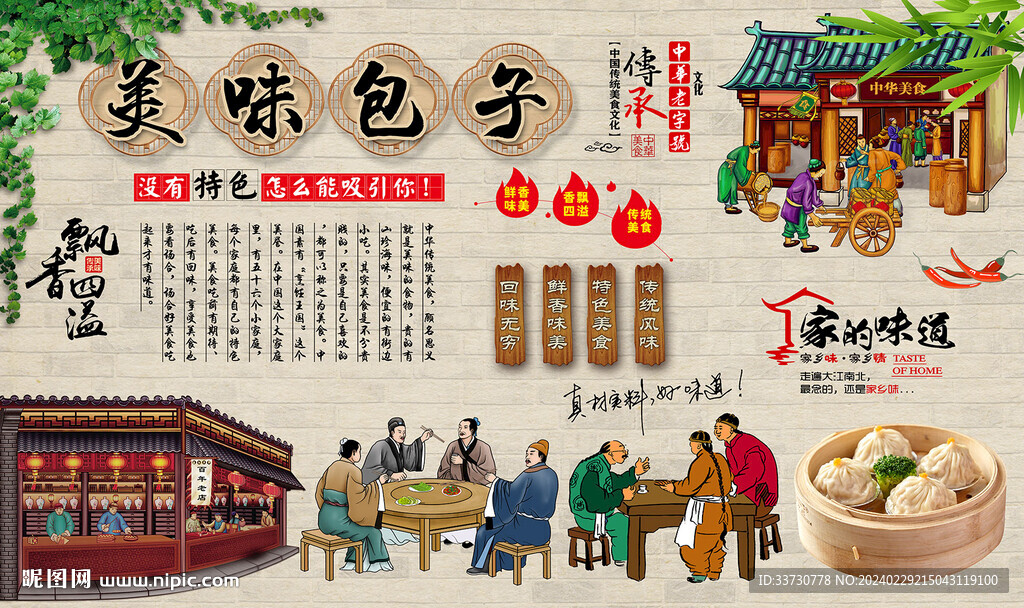 美味包子
没有特色怎么能吸引你！
【中国传统美食文化】
传承
中华美食
中華老字號
文化
中华美食
鲜香味美
香飘四溢
传统美食
飘香四溢
美味传承
中华传统美食，顾名思义
就是美味的食物，贵的有
山珍海味，便宜的有街边
小吃。其实美食是不分贵
贱的，只要是自己喜欢的
，都可以称之为美食。中
国素有“烹饪王国”这个
美誉。在中国这个大家庭
里，有五十六个小家庭，
每个家庭都有自己的特色
美食。美食吃前有期待、
吃后有回味，享受美食也
要看场合，场合好美食吃
起来才有味道。
回味无穷
鲜香味美
特色美食
传统风味
真材实料，好味道！
家的味道
家乡味·家乡情
TASTE
OF HOME
走遍大江南北，
最念的，还是家乡味...
百年老店
昵图网 www.nipic.com
ID:33730778 NO:20240229215043119100